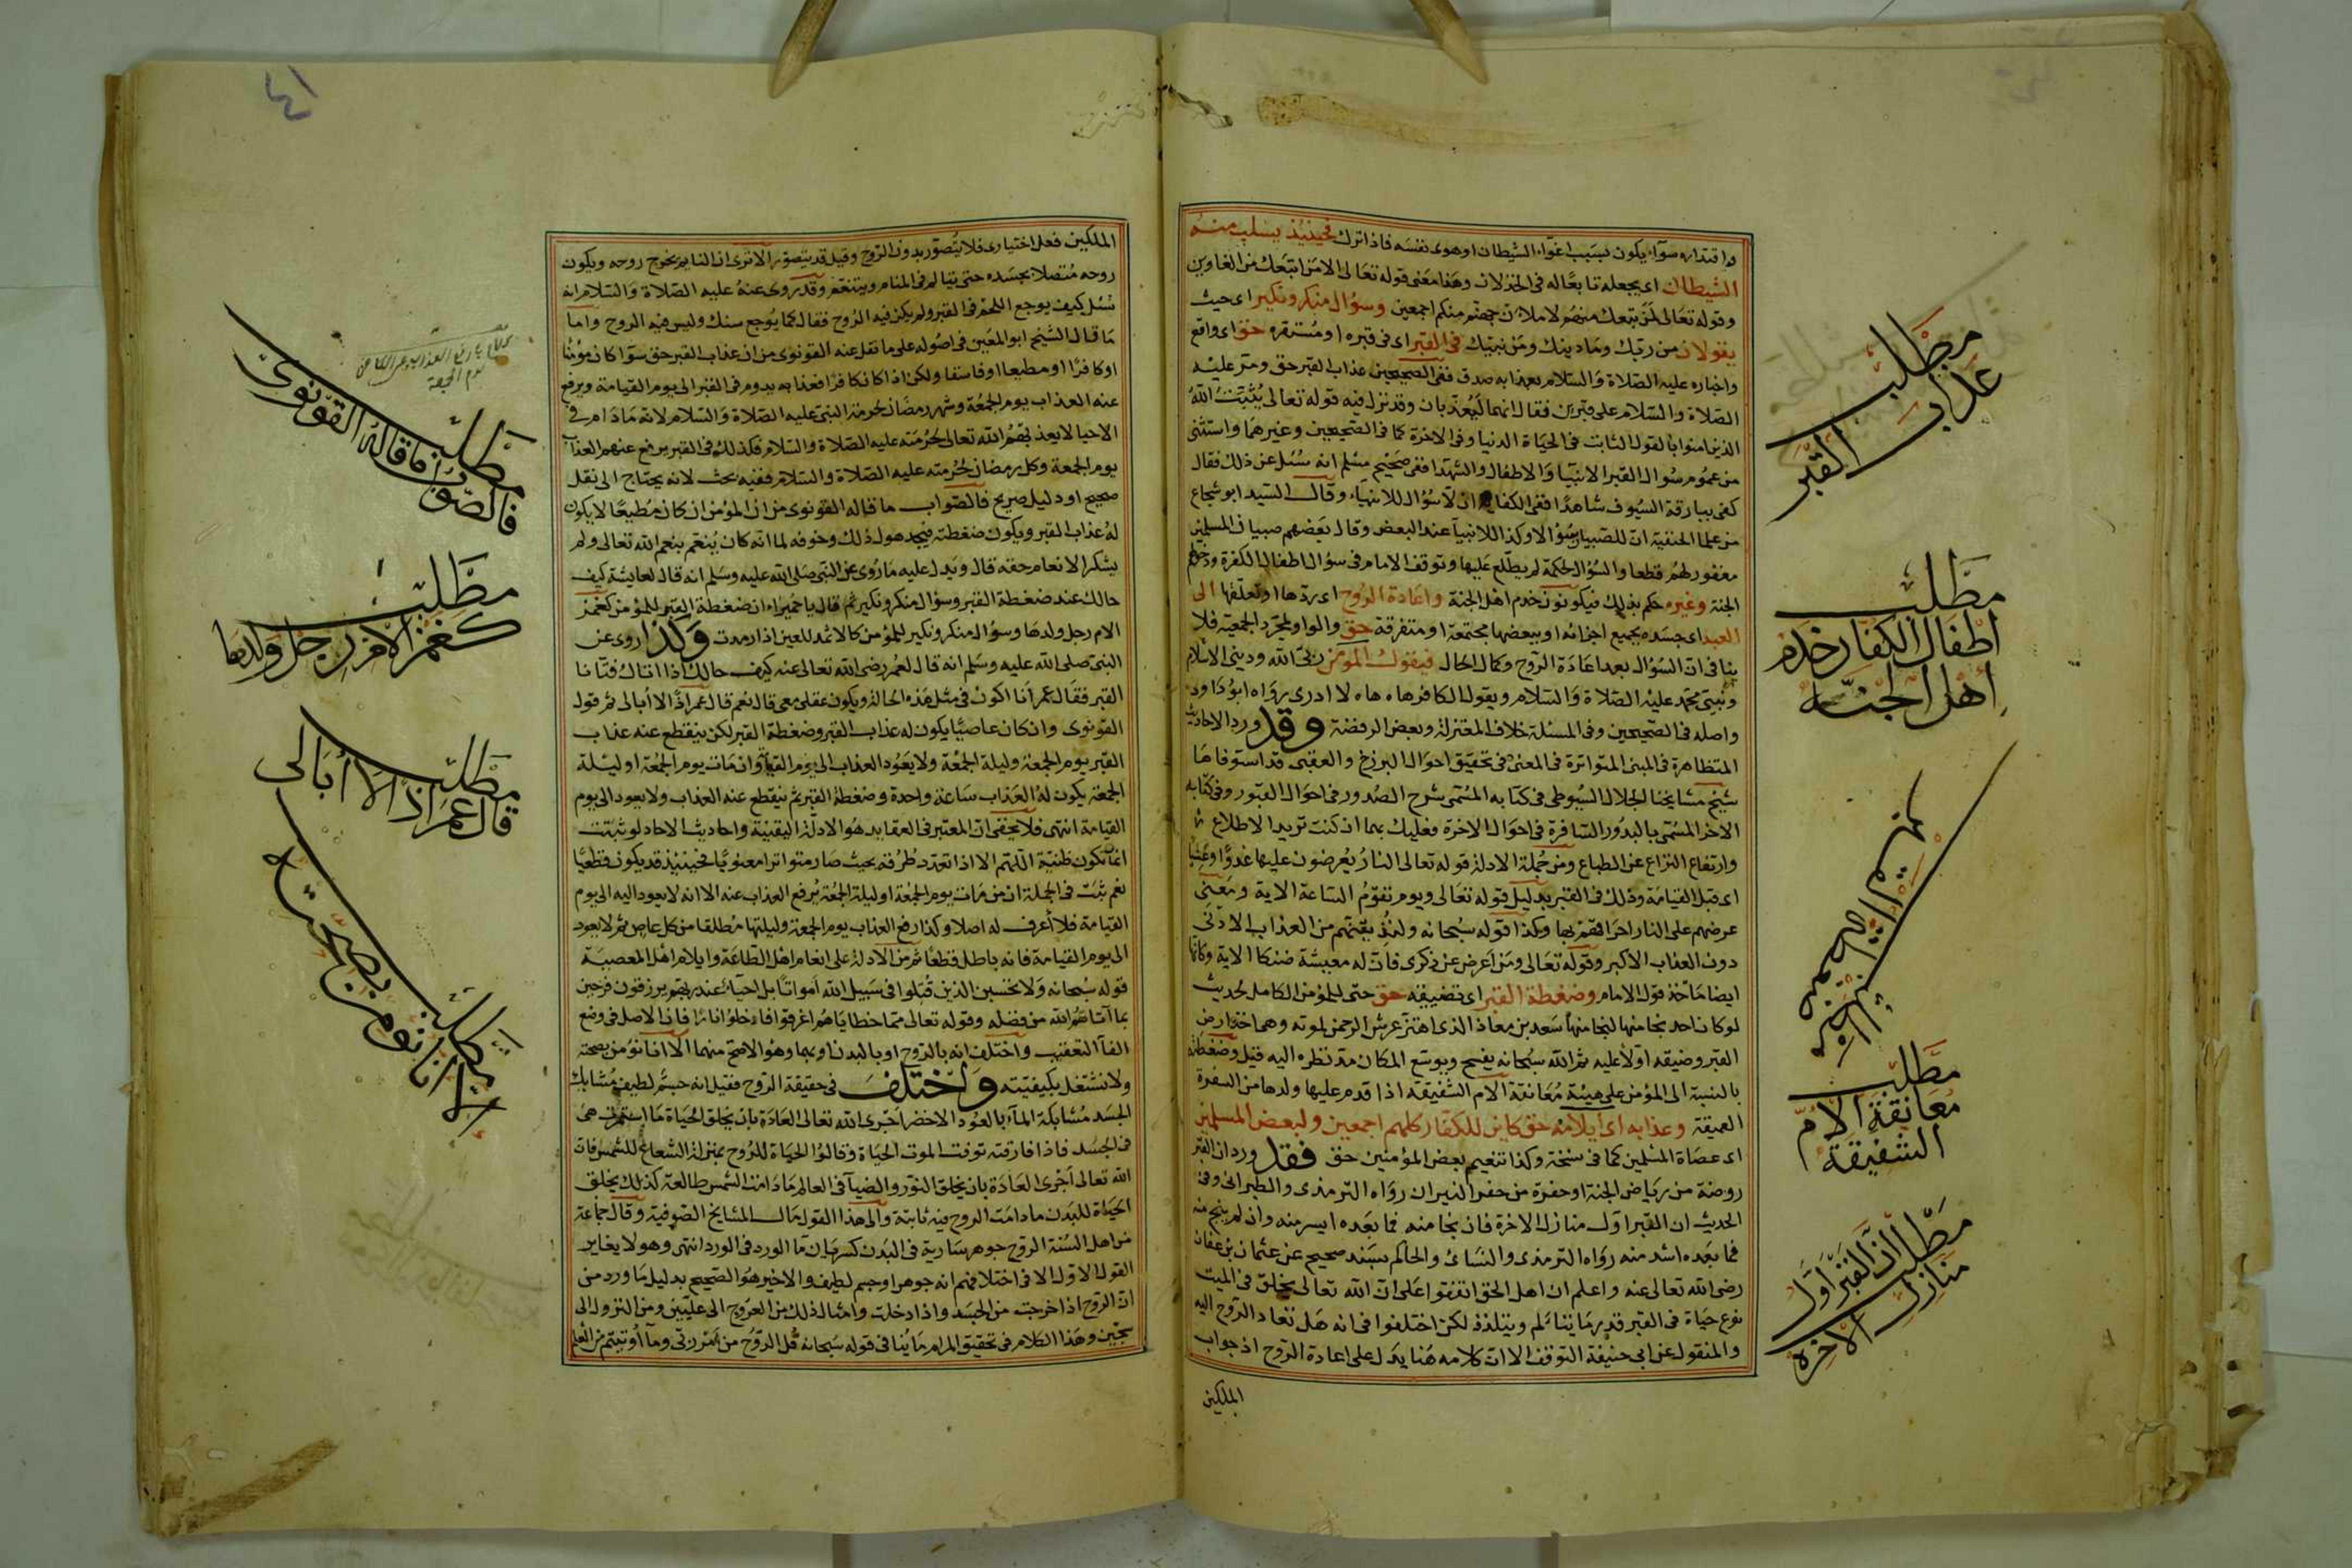 واقتداره سوآء يكون بسبب اغوآء الشيطان او هوى نفسه فاذا ترك فحينئذ يسلب منه
الشيطان اى يجعله تابعًا له فى الخذلان وهذا معنى قوله تعالى الا من اتبعك من الغاوين
وقوله تعالى لمن تبعك منهم لاملان جهنم منكم اجمعين وسؤال منكر ونكير اى حيث
يقولان من ربك وما دينك ومن نبيك فى القبر اى فى قبره او مستقره حق اى واقع
واخباره عليه الصلاة والسلام بعذابه صدق ففى الصحيحين عذاب القبر حق ومر عليه
الصلاة والسلام على قبرين فقال انهما ليعذبان وقد نزل فيه قوله تعالى يثبت الله
الذين امنوا بالقول الثابت فى الحياة الدنيا وفى الاخرة كما فى الصحيحين وغيرهما واستثنى
من عموم سوال القبر الانبيا والاطفال والشهدا ففى صحيح مسلم انه سئل عن ذلك فقال
كفى ببارقة السيوف شاهدا ففى الكفاية ان لا سؤال للانبياء وقال السيد ابو شجاع
من علما الحنفية ان للصبيان سؤالا وكذا للانبيآ عند البعض وقال بعضهم صبيان المسلمين
مغفور لهم قطعا والسؤال لحكمة لم يطلع عليها وتوقف الامام فى سؤال اطفال الكفرة ودخولهم
الجنة وغيره حكم بذلك فيكونون خدم اهل الجنة واعادة الروح اى ردها او تعلقها الى
العبد اى جسده بجميع اجزائه او ببعضها مجتمعة او متفرقة حق والواو لمجرد الجمعية فلا
ينافى ان السؤال بعد اعادة الروح وكمال الحال فيقول المؤمن ربى الله ودينى الاسلام
ونبيى محمد عليه الصلاة والسلام ويقول الكافر هاه هاه لا ادرى رواه ابو داود
واصله فى الصحيحين وفى المسئلة خلاف المعتزلة وبعض الرفضة وقد ورد الاحاديث
المتظاهرة فى المبنى المتواترة فى المعنى فى تحقيق احوال البرزخ والعقبى قد استوفاها
شيخ مشايخنا الجلال السيوطى فى كتابه المسمى شرح الصدور فى احوال القبور وفى كتابه
الاخر المسمى بالبدور السافرة فى احوال الاخرة فعليك بهما ان كنت تريد الاطلاع
وارتفاع النزاع عن الطباع ومن جملة الادلة قوله تعالى النار يعرضون عليها غدوا وعشيا
اى قبل القيامة وذلك فى القبر بدليل قوله تعالى ويوم تقوم الساعة الاية ومعنى
عرضهم على النار احراقهم بها وكذا قوله سبحانه ولنذيقنهم من العذاب الادنى
دون العذاب الاكبر وقوله تعالى ومن اعرض عن ذكرى فان له معيشة ضنكا الاية وكانها
ايضا ماخذ قول الامام وضغطة القبر اى تضييقه حق حتى للمؤمن الكامل لحديث
لو كان احد نجا منها لنجا منها سعد بن معاذ الذى اهتز عرش الرحمن لموته وهى اخذ ارض
القبر وضيقه اولا عليه ثم الله سبحانه يفسح ويوسع المكان مد نظره اليه قيل وضغطته
بالنسبة الى المؤمن على هيئة معانقة الام الشفيقة اذا قدم عليها ولدها من السفرة
العميقة وعذابه اى ايلامه حق كاين للكفار كلهم اجمعين ولبعض المسلمين
اى عصاة المسلمين كما فى نسخة وكذا تنعيم بعض المؤمنين حق فقد ورد ان القبر
روضة من رياض الجنة او حفرة من حفر النيران رواه الترمذى والطبرانى وفى
الحديث ان القبر اول منازل الاخرة فان نجا منه فما بعده ايسر منه وان لم ينج منه
فما بعده اشد منه رواه الترمذى والنسائ والحاكم بسند صحيح عن عثمان بن عفان
رضى الله تعالى عنه واعلم ان اهل الحق اتفقوا على ان الله تعالى يخلق فى الميت
نوع حياة فى القبر قدر ما يتالم ويتلذذ لكن اختلفوا فى انه هل تعاد الروح اليه
والمنقول عن ابى حنيفة التوقف الا ان كلامه هنا يدل على اعادة الروح اذ جواب
الملكين
مطلب
عذاب القبر
مطلب
اطفال الكفار خدم
اهل الجنة
مطلب
معانقة الام
الشفيقة
مطلب ان القبر اول
منازل الاخرة
الملكين فعل اختيارى فلا يتصور بدون الروح وقيل قد يتصور الا ترى ان النايم يخرج روحه ويكون
روحه متصلا بجسده حتى يتالم فى المنام ويتنعم وقد روى عنه عليه الصلاة والسلام انه
سئل كيف يوجع اللحم فى القبر ولم يكن فيه الروح فقال كما يوجع سنك وليس فيه الروح واما
ما قال الشيخ ابو المعين فى اصوله على ما نقل عنه القونوى من ان عذاب القبر حق سوآ كان مؤمنا
او كافرا او مطيعا او فاسقا ولكن اذا كان كافرا فعذابه يدوم فى القبر الى يوم القيامة ويرفع
عنه العذاب يوم الجمعة وشهر رمضان لحرمة النبى عليه الصلاة والسلام لانه ما دام فى
الاحيا لا يعذبهم الله تعالى لحرمته عليه الصلاة والسلام فكذلك فى القبر يرفع عنهم العذاب
يوم الجمعة وكل رمضان لحرمته عليه الصلاة والسلام ففيه بحث لانه يحتاج الى نقل
صحيح او دليل صريح فالصواب ما قاله القونوى من ان المؤمن ان كان مطيعا لا يكون
له عذاب القبر ويكون ضغطته فيجد هول ذلك وخوفه لما انه كان يتنعم بنعم الله تعالى ولم
يشكر الانعام حقه قال ويدل عليه ما روى عن النبى صلى الله عليه وسلم انه قال لعايشة كيف
حالك عند ضغطة القبر وسؤال منكر ونكير ثم قال يا حميراء ان ضغطة القبر للمؤمن كغمز
الام رجل ولدها وسؤال منكر ونكير للمؤمن كالاثمد للعين اذا رمدت ولذا روى عن
النبى صلى الله عليه وسلم انه قال لعمر رضى الله تعالى عنه كيف حالك اذا اتاك فتانا
القبر فقال عمر أنا اكون فى مثل هذه الحالة ويكون عقلى معى قال نعم قال عمر اذًا لا أبالى ثم قول
القونوى وان كان عاصيًا يكون له عذاب القبر وضغطة القبر لكن ينقطع عنه عذاب
القبر يوم الجمعة وليلة الجمعة ولا يعود العذاب الى يوم القيامة وان مات يوم الجمعة او ليلة
الجمعة يكون له العذاب ساعة واحدة وضغطة القبر ثم ينقطع عنه العذاب ولا يعود الى يوم
القيامة انتهى فلا يخفى ان المعتبر فى العقايد هو الادلة اليقينية واحاديث الاحاد لو ثبتت
انما تكون ظنية اللهم الا اذا تعدد طرقه بحيث صار متواترا معنويا فحينئذ قد يكون قطعيا
نعم ثبت فى الجملة ان من مات يوم الجمعة او ليلة الجمعة يرفع العذاب عنه الا انه لا يعود اليه الى يوم
القيامة فلا أعرف له اصلا وكذا رفع العذاب يوم الجمعة وليلتها مطلقا من كل عاص ثم لا يعود
الى يوم القيامة فانه باطل قطعًا ثم من الادلة على انعام اهل الطاعة وايلام اهل المعصية
قوله سبحانه ولا تحسبن الذين قتلوا فى سبيل الله امواتا بل احياء عند ربهم يرزقون فرحين
بما آتاهم الله من فضله وقوله تعالى مما خطاياهم اغرقوا فادخلوا نارا فان الاصل فى وضع
الفآ التعقيب واختلف انه بالروح او بالبدن او بهما وهو الاصح منهما الا انا نؤمن بصحته
ولا نشتغل بكيفيته واختلف فى حقيقة الروح فقيل انه جسم لطيف مشابك
الجسد مشابكة المآء بالعود الاخضر اجرى الله تعالى العادة بان يخلق الحياة ما استمر هى
فى الجسد فاذا فارقته توفت الموت الحياة وقالوا الحياة للروح بمنزلة الشعاع للشمس فان
الله تعالى اجرى العادة بان يخلق النور والضيآ فى العالم ما دامت الشمس طالعة كذلك يخلق
الحياة للبدن ما دامت الروح فيه ثابتة والى هذا القول مال المشايخ الصوفية وقال جماعة
من اهل السنة الروح جوهر سارية فى البدن كسريان مآ الورد فى الورد انتهى وهو لا يغاير
القول الاول الا فى اختلافهم انه جوهر او جسم لطيف والاخير هو الصحيح بدليل ما ورد من
ان الروح اذا خرجت من الجسد واذا دخلت وامثال ذلك من العروج الى عليين ومن النزول الى
سجين وهذا الكلام فى تحقيق المرام ما ينافى قوله سبحانه قل الروح من امر ربى وما أوتيتم من العلم
مطلب
فالصواب ما قاله القونوى
مطلب
كغمز الام رجل ولدها
مطلب
قال عمر اذا لا أبالى
مطلب
الا انا نؤمن بصحته